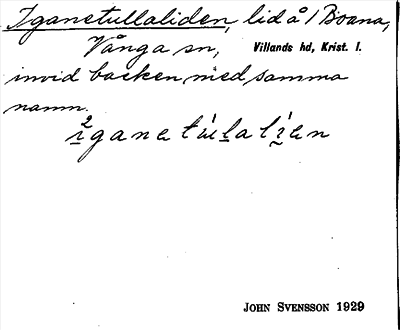 Iganetullaliden, lid å 1 Boana,
Vånga sn, Villands hd, Krist. l.
invid backen med samma
namn.
JOHN SVENSSON 1929